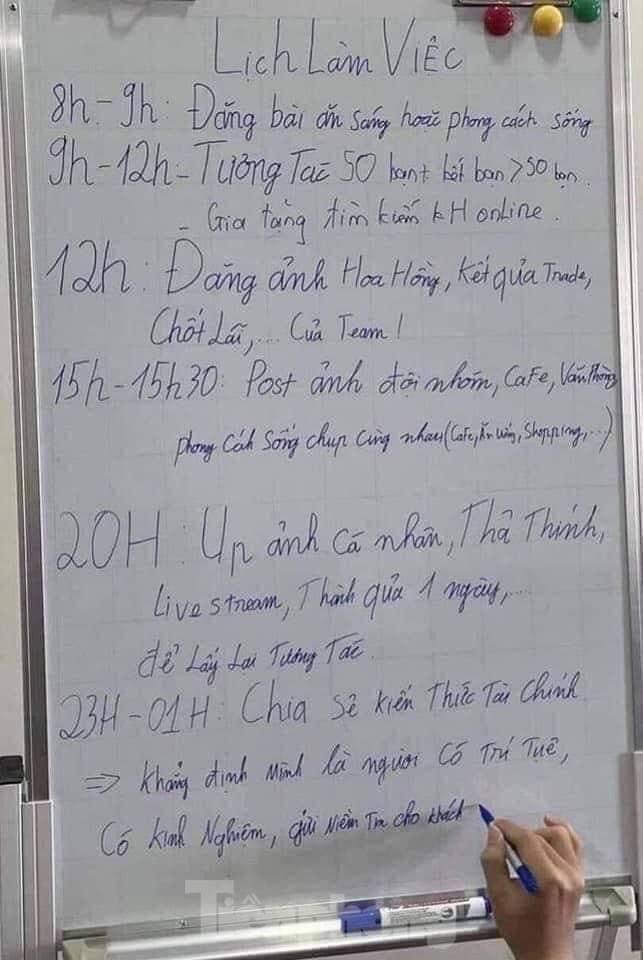 Lịch Làm Việc
8h-9h: Đăng bài ăn sáng hoặc phong cách sống
9h-12h- Tương Tác 50 bạn+ kết bạn > 50 bạn.
Gia tăng tìm kiếm KH online.
12h: Đăng ảnh Hoa Hồng, kết quả Trade,
Chốt Lãi,... Của Team!
15h-15h30: Post ảnh đội nhóm, CaFe, Văn Phòng
phong cách sống chụp cùng nhau (Cafe, Ăn uống, Shopping,...)
20H: Up ảnh cá nhân, Thả Thính,
Live stream, Thành quả 1 ngày,...
để Lấy Lại Tương Tác.
23H-01H: Chia Sẻ kiến Thức Tài Chính.
=> khẳng định mình là người Có Trí Tuệ,
Có kinh Nghiệm, gửi Niềm Tin cho khách
Tiền Phong